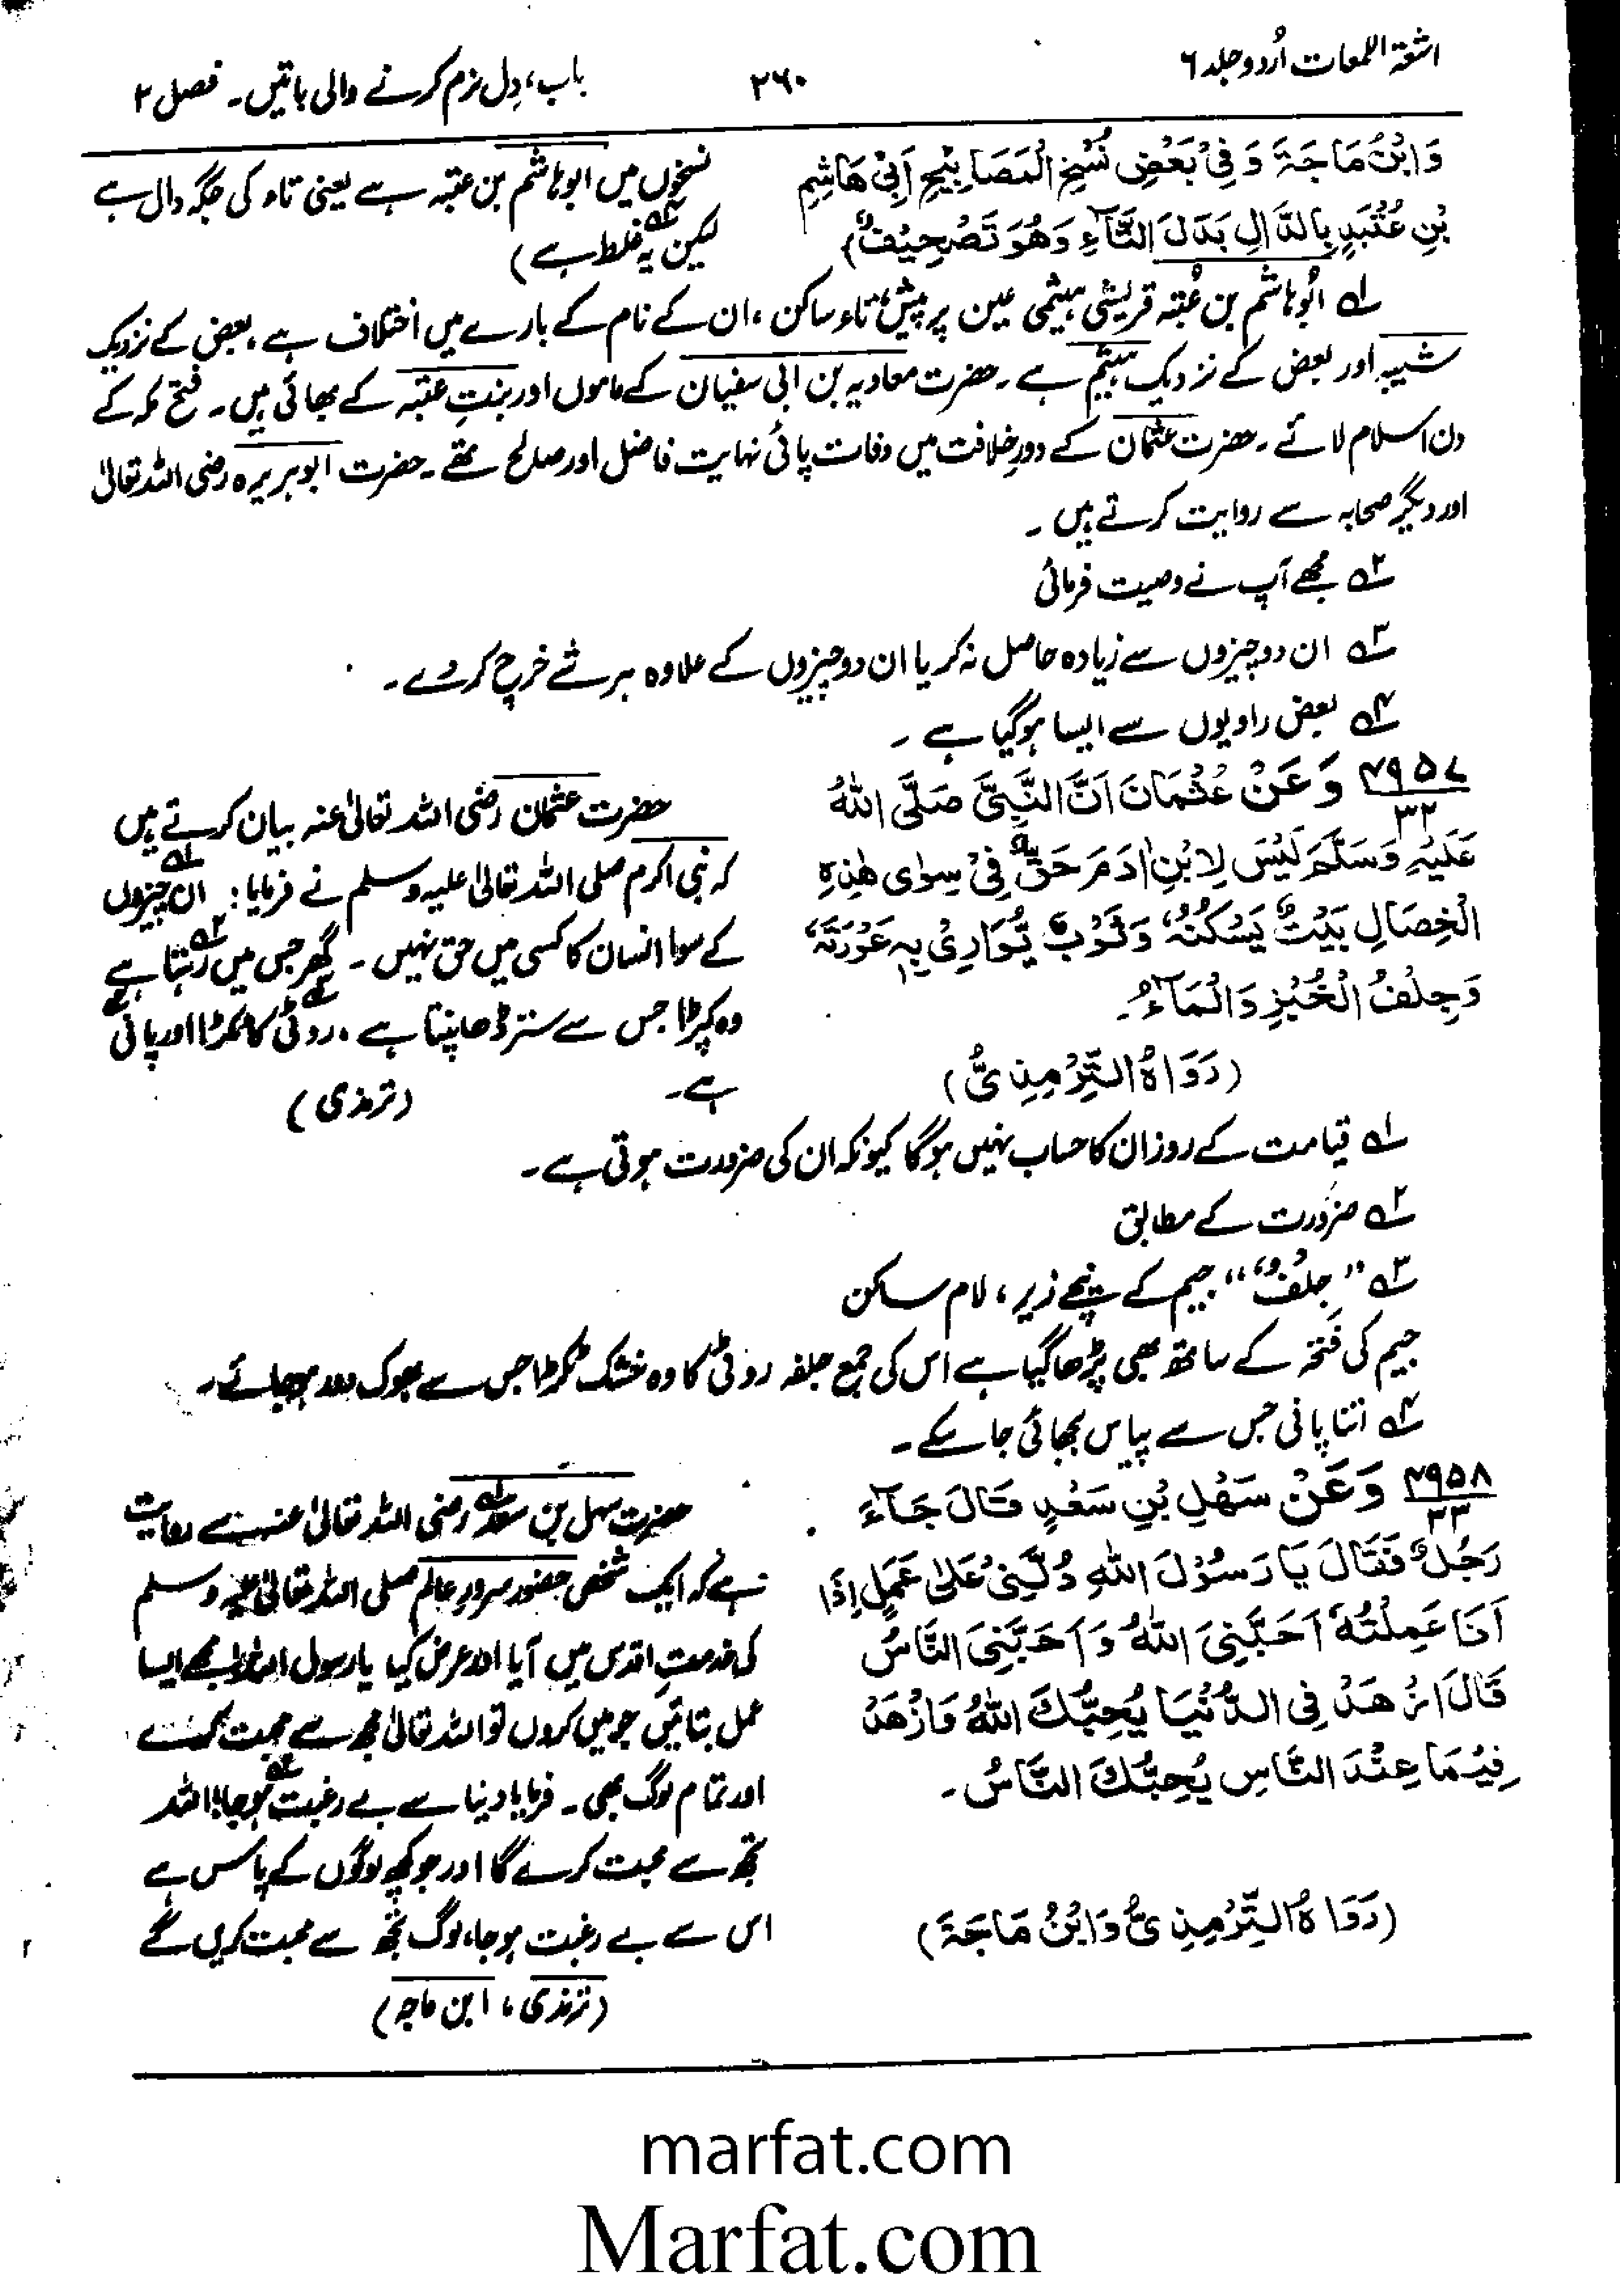 اشعۃ اللمعات اُردو جلد ۶
۲۶۰
باب، دِل نرم کرنے والی باتیں۔ فصل ۲
وَابْنُ مَاجَۃَ وَفِیْ بَعْضِ نُسَخِ الْمَصَابِیْحِ اَبِیْ هَاشِمِ
بْنِ عُتْبَدٍ بِالدَّالِ بَدَلَ التَّآءِ وَهُوَ تَصْحِیْفٌ)
نسخوں میں ابوہاشم بن عتبہ ہے یعنی تاء کی جگہ دال ہے
لیکن یہ غلط ہے)
۱ ابُوہاشم بن عُتبہ قریشی ہیثمی عین پر پیش، تاء ساکن، ان کے نام کے بارے میں اختلاف ہے، بعض کے نزدیک
شیبہ اور بعض کے نزدیک ہیثم ہے۔ حضرت معاویہ بن ابی سفیان کے ماموں اور بنتِ عتبہ کے بھائی ہیں۔ فتح مکہ کے
دن اسلام لائے۔ حضرت عثمان کے دورِ خلافت میں وفات پائی نہایت فاضل اور صالح تھے۔ حضرت ابوہریرہ رضی اللہ تعالیٰ
اور دیگر صحابہ سے روایت کرتے ہیں۔
۲ مجھے آپ نے وصیت فرمائی
۳ ان دو چیزوں سے زیادہ حاصل نہ کر یا ان دو چیزوں کے علاوہ ہر شے خرچ کر دے۔
۴ بعض راویوں سے ایسا ہو گیا ہے۔
۴۹۵۷
۳۲
وَعَنْ عُثْمَانَ اَنَّ النَّبِیَّ صَلَّی اللّٰهُ
عَلَیْهِ وَسَلَّمَ لَیْسَ لِابْنِ اٰدَمَ حَقٌّ فِیْ سِوٰی هٰذِهِ
الْخِصَالِ بَیْتٌ یَسْکُنُهٗ وَثَوْبٌ یُّوَارِیْ بِهٖ عَوْرَتَهٗ
وَجِلْفُ الْخُبْزِ وَالْمَآءُ۔
(رَوَاهُ التِّرْمِذِیُّ)
حضرت عثمان رضی اللہ تعالیٰ عنہ بیان کرتے ہیں
کہ نبی اکرم صلی اللہ تعالیٰ علیہ وسلم نے فرمایا: ان چیزوں۱
کے سوا انسان کا کسی میں حق نہیں۔ گھر جس میں رہتا۲ ہے
وہ کپڑا جس سے ستر ڈھانپتا ہے، روٹی۳ کا ٹکڑا اور پانی۴
ہے۔ (ترمذی)
۱ قیامت کے روز ان کا حساب نہیں ہو گا کیونکہ ان کی ضرورت ہوتی ہے۔
۲ ضرورت کے مطابق
۳ "جِلْفُ" جیم کے نیچے زیر، لام ساکن
جیم کی فَتحہ کے ساتھ بھی پڑھا گیا ہے اس کی جمع جلفہ روٹی کا وہ خشک ٹکڑا جس سے بھوک دور ہو جائے۔
۴ اتنا پانی جس سے پیاس بجھائی جا سکے۔
۴۹۵۸
۳۳
وَعَنْ سَهْلِ بْنِ سَعْدٍ قَالَ جَآءَ
رَجُلٌ فَقَالَ یَا رَسُوْلَ اللّٰهِ دُلَّنِیْ عَلٰی عَمَلٍ اِذَا
اَنَا عَمِلْتُهٗ اَحَبَّنِیَ اللّٰهُ وَاَحَبَّنِیَ النَّاسُ
قَالَ ازْهَدْ فِی الدُّنْیَا یُحِبُّكَ اللّٰهُ وَازْهَدْ
فِیْمَا عِنْدَ النَّاسِ یُحِبُّكَ النَّاسُ۔
(رَوَاهُ التِّرْمِذِیُّ وَابْنُ مَاجَۃَ)
حضرت سہل بن سعد۱ رضی اللہ تعالیٰ عنہ سے روایت
ہے کہ ایک شخص حضور سرورِ عالم صلی اللہ تعالیٰ علیہ وسلم
کی خدمتِ اقدس میں آیا اور عرض کیا یا رسول اللہ! مجھے ایسا
عمل بتائیں جو میں کروں تو اللہ تعالیٰ مجھ سے محبت کرے
اور تمام لوگ بھی۔ فرمایا دنیا سے بے رغبت۲ ہو جا، اللہ
تجھ سے محبت کرے گا اور جو کچھ لوگوں کے پاس ہے
اس سے بے رغبت ہو جا، لوگ تجھ سے محبت کریں گے
(ترمذی، ابن ماجہ)
marfat.com
Marfat.com